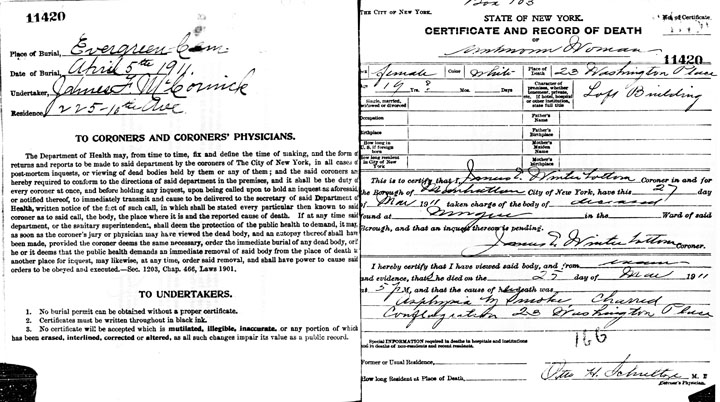 11420
Place of Burial, Evergreen Cem.
Date of Burial, April 5th 191
Undertaker, James F. McCormick
Residence, 225-10th Ave
TO CORONERS AND CORONERS' PHYSICIANS.
The Department of Health may, from time to time, fix and define the time of making, and the form of
returns and reports to be made to said department by the coroners of The City of New York, in all cases of
post-mortem inquests, or viewing of dead bodies held by them or any of them; and the said coroners are
hereby required to conform to the directions of said department in the premises, and it shall be the duty of
every coroner at once, and before holding any inquest, upon being called upon to hold an inquest as aforesaid
or notified thereof, to immediately transmit and cause to be delivered to the secretary of said Department of
Health, written notice of the fact of such call, in which shall be stated every particular then known to said
coroner as to said call, the body, the place where it is and the reported cause of death. If at any time said
department, or the sanitary superintendent, shall deem the protection of the public health to demand, it may,
as soon as the coroner's jury or physician may have viewed the dead body, and an autopsy thereof shall have
been made, provided the coroner deems the same necessary, order the immediate burial of any dead body, or if
he or it deems that the public health demands an immediate removal of said body from the place of death to
another place for inquest, may likewise, at any time, order said removal, and shall have power to cause said
orders to be obeyed and executed.—Sec. 1203, Chap. 466, Laws 1901.
TO UNDERTAKERS.
1. No burial permit can be obtained without a proper certificate.
2. Certificates must be written throughout in black ink.
3. No certificate will be accepted which is mutilated, illegible, inaccurate, or any portion of which
has been erased, interlined, corrected or altered, as all such changes impair its value as a public record.
Box 103
THE CITY OF NEW YORK.
STATE OF NEW YORK.
No. of Certificate
CERTIFICATE AND RECORD OF DEATH
OF
Unknown Woman
11420
female Color White Place of Death 23 Washington Place
19 ? Yrs. Mos. Days Character of premises, whether tenement, private, etc. If hotel, hospital or other institution, state full title Loft Building
Single, married, widowed or divorced
Occupation Father's Name
Birthplace Father's Birthplace
How long in U. S. if foreign born Mother's Maiden Name
How long resident in City of New York Mother's Birthplace
This is to certify that I, James E. Winterbottom Coroner in and for
the Borough of Manhattan City of New York, have this 27 day
of Mar 1911 taken charge of the body of deceased
found at Morgue in the Ward of said
Borough, and that an inquest thereon is pending.
James E. Winterbottom Coroner.
I hereby certify that I have viewed said body, and from exam
and evidence, that he died on the 25 day of Mar 1911
at 5 P M, and that the cause of h death was
Asphyxia by Smoke Charred
Conflagration 23 Washington Place
166
Special INFORMATION required in deaths in hospitals and institutions
and in deaths of non-residents and recent residents.
Former or Usual Residence,
How long Resident at Place of Death,
Otto H. Schultze, M. D.
Coroner's Physician.